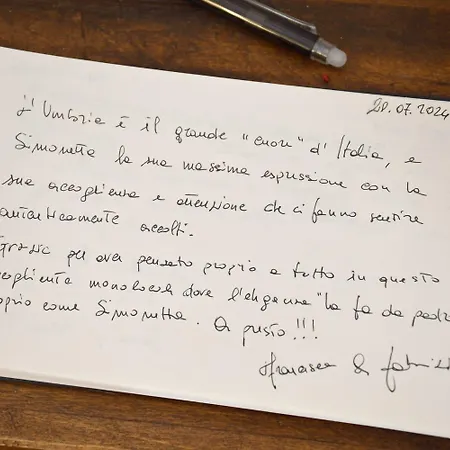 20.07.2024
L'Umbria è il grande "cuore" d'Italia, e
Simonetta la sua massima espressione con la
sua accoglienza e attenzione che ci fanno sentire
autenticamente accolti.
Grazie per aver pensato proprio a tutto in questo
accogliente monolocale dove l'eleganza "la fa da padro
proprio come Simonetta. A presto!!!
Francesca & Fabrizio